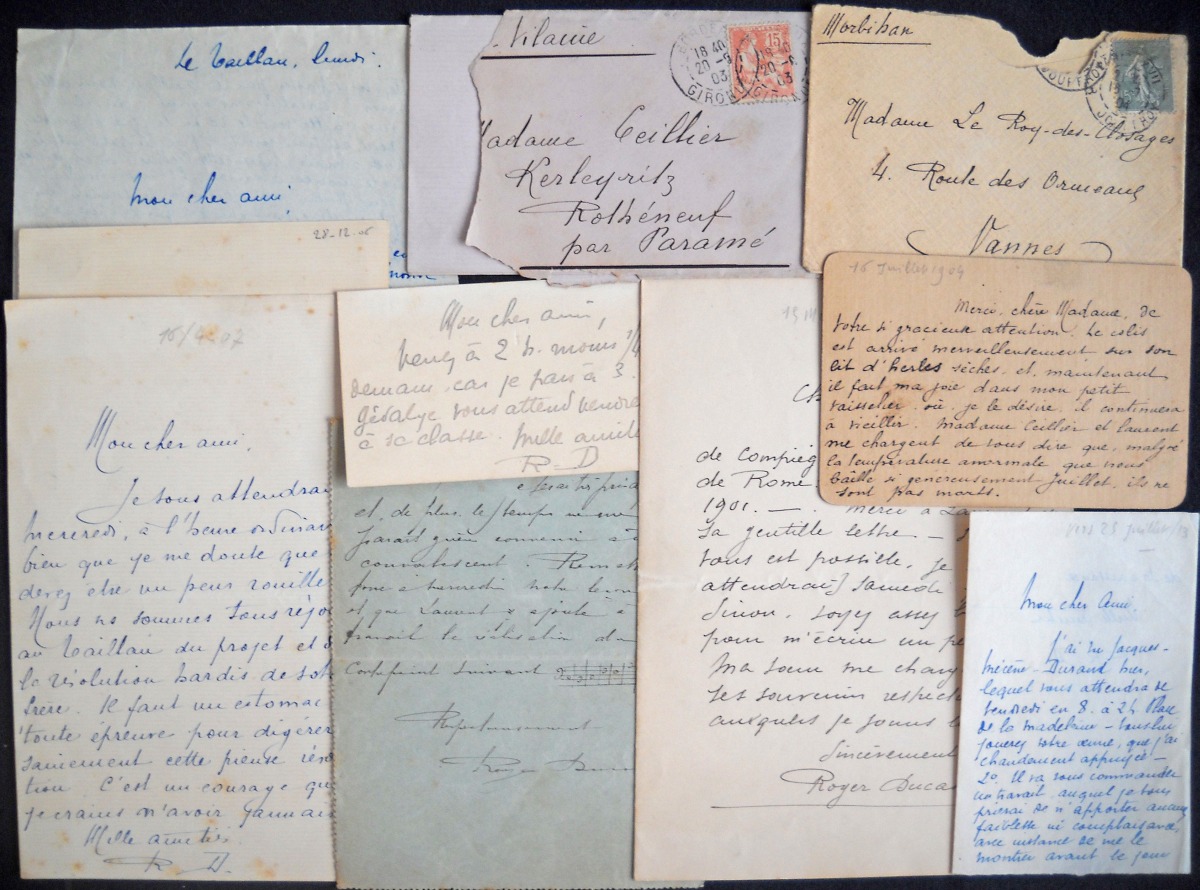 Le Taillan, lundi.
Mon cher ami,
28-12-06
Vilaine
15
18 40
20 -9
03
GIRONDE
Madame Ceillier
Kerleyritz
Rothéneuf
par Paramé
Morbihan
Madame Le Roy-des-
4. Route des Ormeaux
Vannes
16/4-07
Mon cher ami,
Je vous attendrai
Mercredi, à l'heure ordinair
bien que je me doute que
devez être un peu rouillé
Nous nous sommes tous réjou
au Taillan du projet et d
la résolution hardis de votre
frère. Il faut un estomac
toute épreuve pour digérer
sainement cette pieuse
tion. C'est un courage qu
je crains n'avoir jamais
Mille amitiés.
R. D.
Mon cher ami,
Venez à 2 h. moins 1/4
demain, car je pars à 3.
Gédalge vous attend vendre
à sa classe. Mille amiti
R-D
et, de plus, le temps ne me
parait guère convenir à
convalescent.
et que Laurent y ajoute à
travail la réalisation du
Contrepoint suivant
Respectueusement
Roger Ducas
15 M
Ch
de Compièg
de Rome
1901. — Merci à
sa gentille lettre —
vous est possible, je
attendrai Samedi
Sinon, soyez assez
pour m'écrire un pe
Ma sœur me charg
ses souvenirs respect
auxquels je joins l
Sincèrement
Roger Ducas
16 Juillet 1904
Merci, chère Madame, de
votre si gracieuse attention. Le colis
est arrivé merveilleusement sur son
lit d'herbes sèches, et, maintenant
il fait ma joie dans mon petit
vaisselier, où, je le désire, il continuera
à vieillir. Madame Ceillier et Laurent
me chargent de vous dire que, malgré
la température anormale que nous
bâille si généreusement Juillet, ils ne
sont pas morts.
25 juillet/13
Mon cher Ami.
J'ai vu Jacques-
mécène-Durand hier,
lequel vous attendra le
vendredi en 8. à 2h Place
de la Madeleine — Vous lui
jouerez votre œuvre, que j'ai
chaudement appuyée —
2º. Il va vous commander
un travail, auquel je vous
prierai de n'apporter aucune
faiblesse ni complaisance,
avec instance de me le
montrer avant le jour